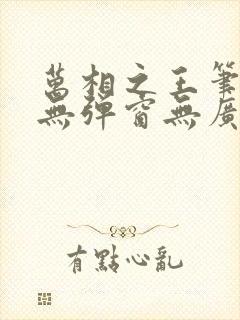 萬相之王筆
無彈窗無廣
有點心亂